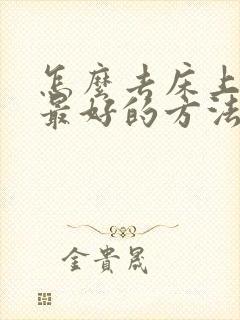 怎麼去床上
最好的方法
金貴晟